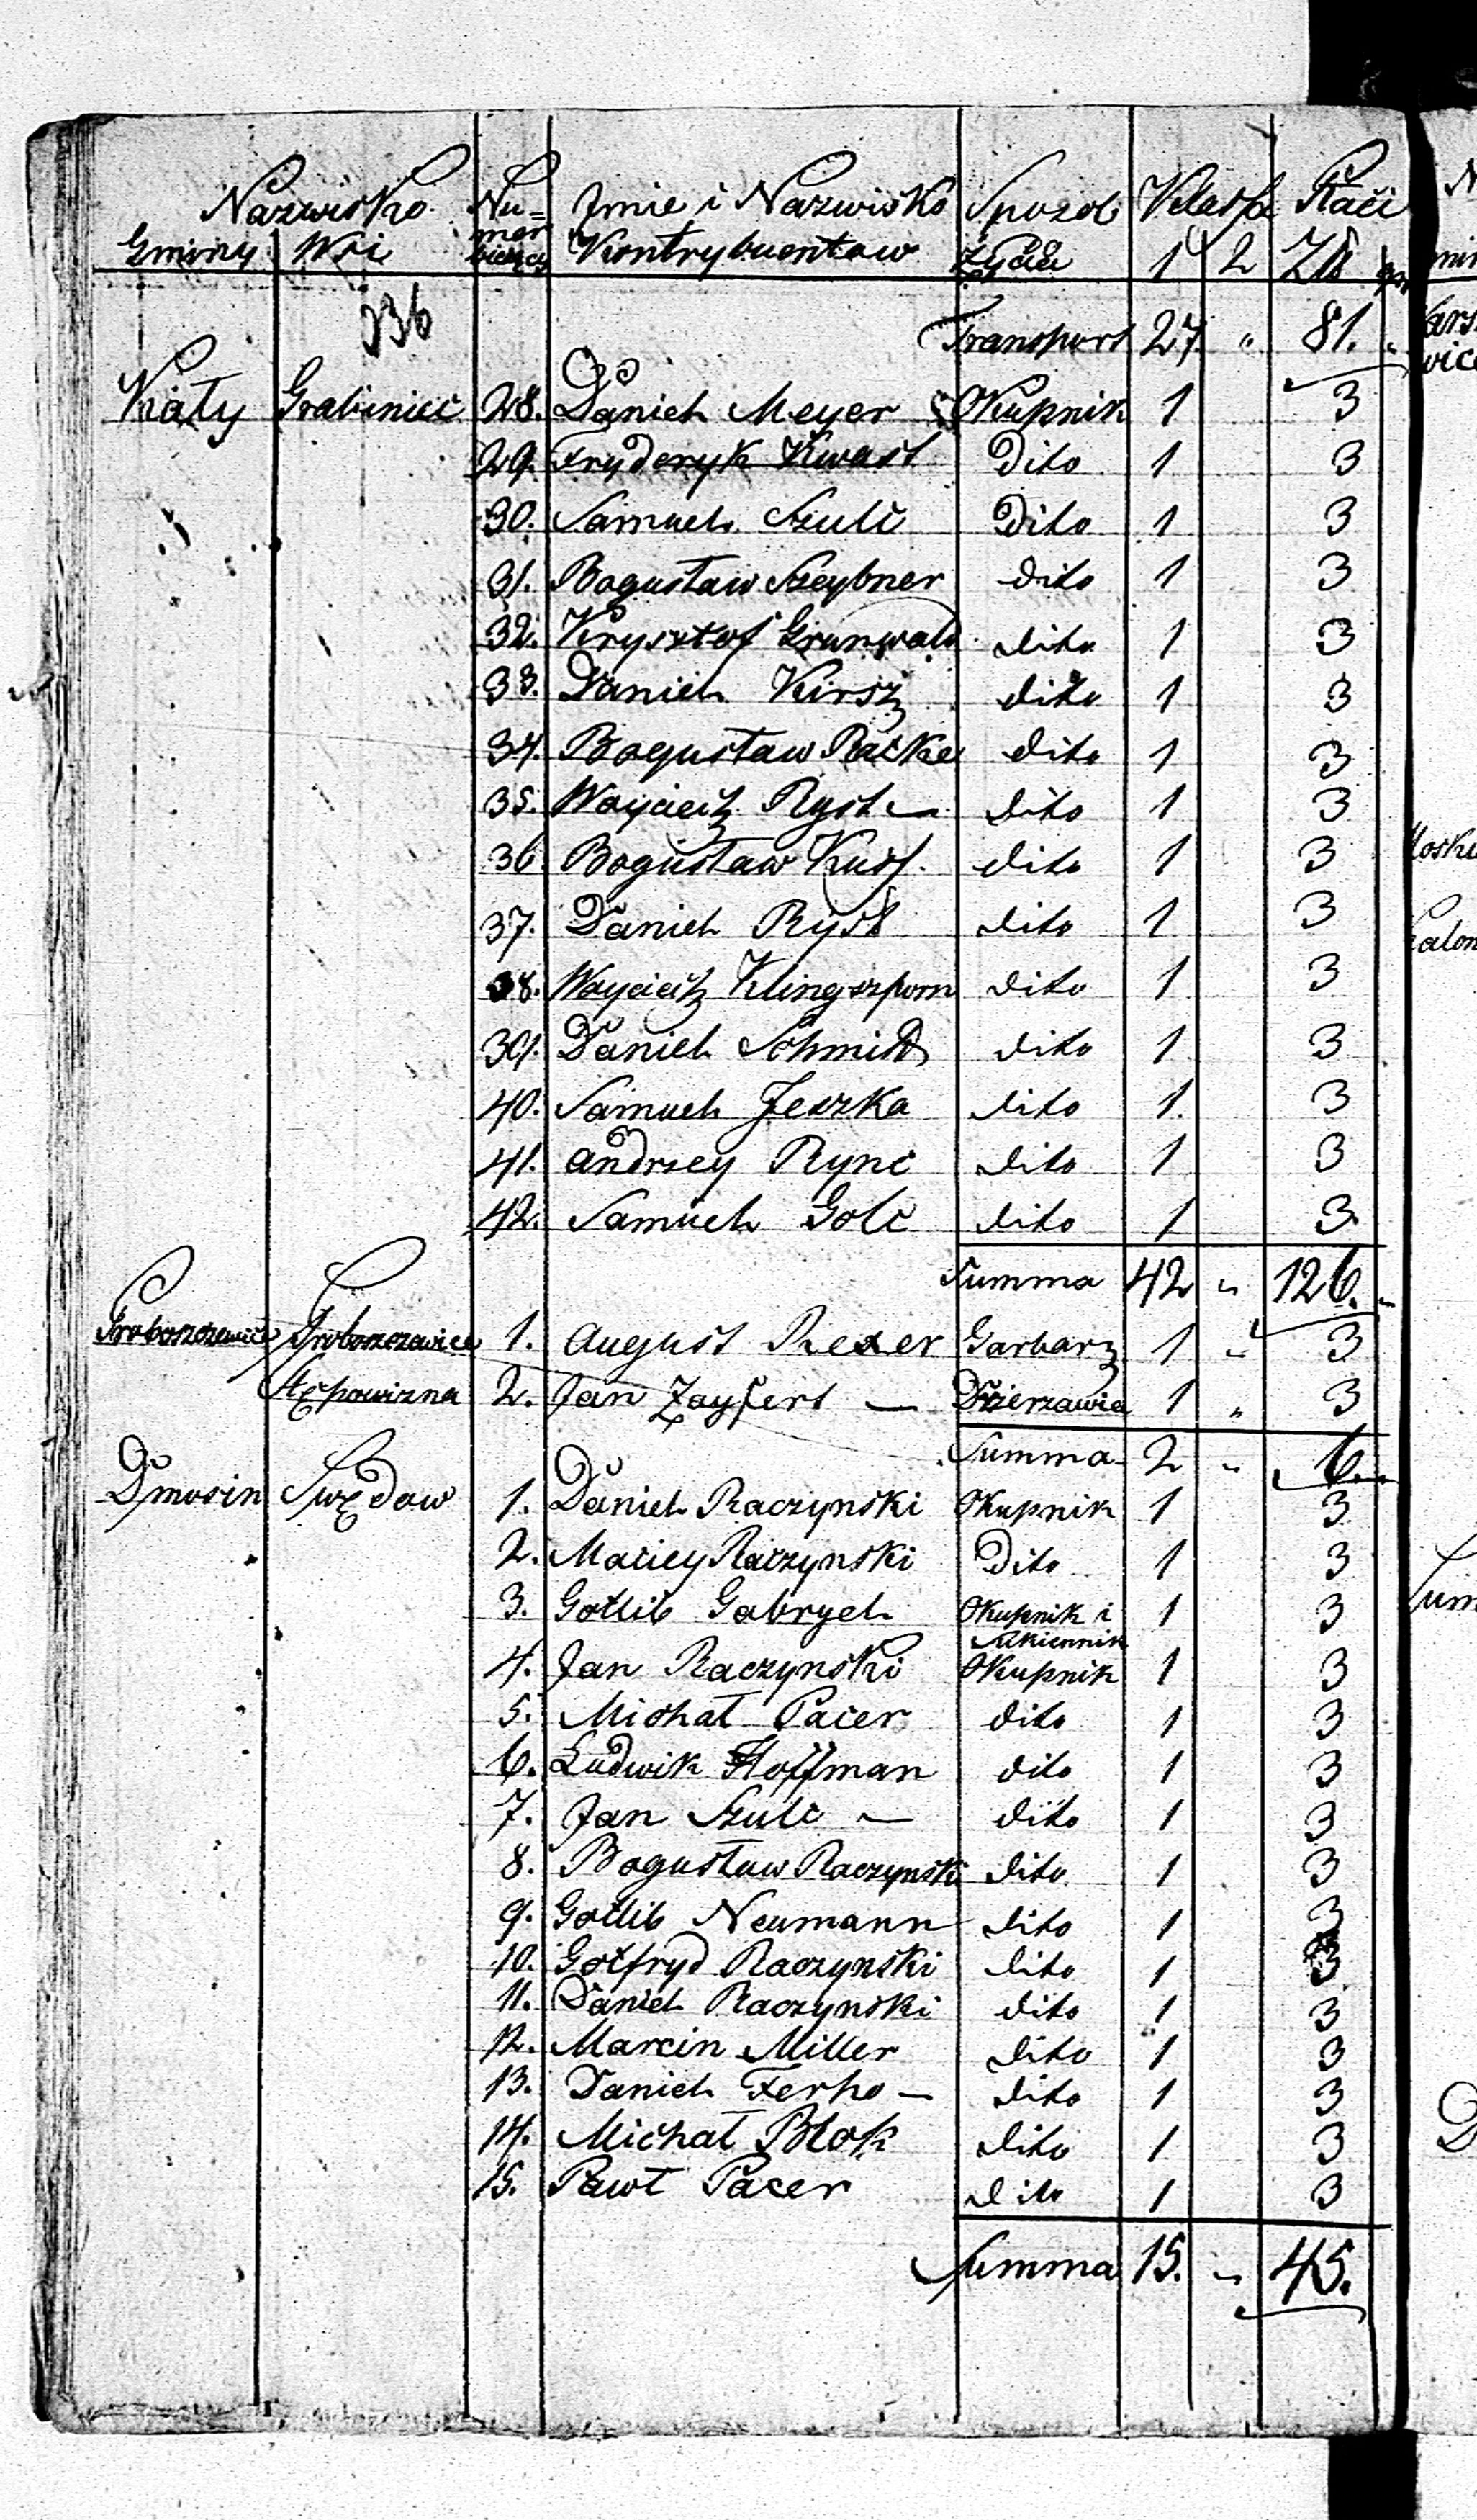 Nazwisko Nu= Imie i Nazwisko Sposob Klassa Płaci
Gminy Wsi mer bieżący Kontrybuentow życia 1 2 Zł gr
336
Transport 27. " 81. "
Kiáły Grabiniec 28. Daniel Meyer Okupnik 1 3
29. Fryderyk Kwast Dito 1 3
30. Samuel Szulc Dito 1 3
31. Bogusław Szeybner dito 1 3
32. Krysztof Grunwald dito 1 3
33. Daniel Kirsz dito 1 3
34. Bogusław Racke dito 1 3
35. Woyciech Ryst — dito 1 3
36 Bogusław Kuss. dito 1 3
37. Daniel Ryst dito 1 3
38. Woyciech Klingszporn dito 1 3
39. Daniel Schmidt dito 1 3
40. Samuel Jeszka dito 1. 3
41. Andrzey Rync dito 1 3
42. Samuel Golc dito 1 3.
Summa 42 " 126. "
Proboszczewice Proboszczewice 1. August Rexer Garbarz 1 " 3
Stępowizna 2. Jan Zayfert — Dzierzawca 1 " 3
Summa 2 " 6.
Dmosin Swędow 1. Daniel Raczynski Okupnik 1 3
2. Maciey Raczynski Dito 1 3
3. Gotlib Gabrych Okupnik i 1 3
Sukiennik
4. Jan Raczynski Okupnik 1 3
5. Michał Pacer dito 1 3
6. Ludwik Hoffman dito 1 3
7. Jan Szulc — dito 1 3
8. Bogusław Raczynski dito 1 3
9. Gotlib Neumann dito 1 3
10. Gotfryd Raczynski dito 1 3
11. Daniel Raczynski dito 1 3
12. Marcin Miller dito 1 3
13. Daniel Ferho — dito 1 3
14. Michał Blok dito 1 3
15. Pawł Pacer dito 1 3
Summa 15. " 45.